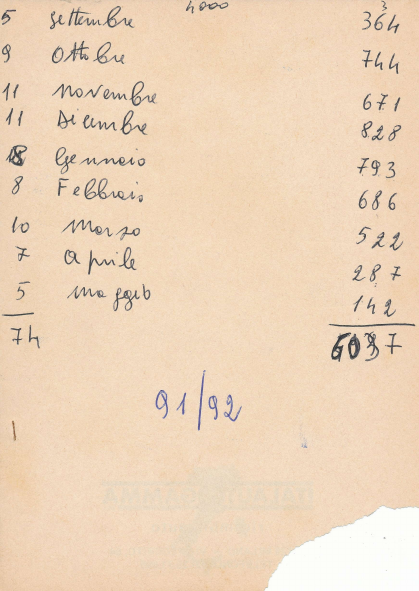 4000
5 settembre 364
9 Ottobre 744
11 Novembre 671
11 Dicembre 828
8 Gennaio 793
8 Febbraio 686
10 Marzo 522
7 Aprile 287
5 Maggio 142
74
91/92